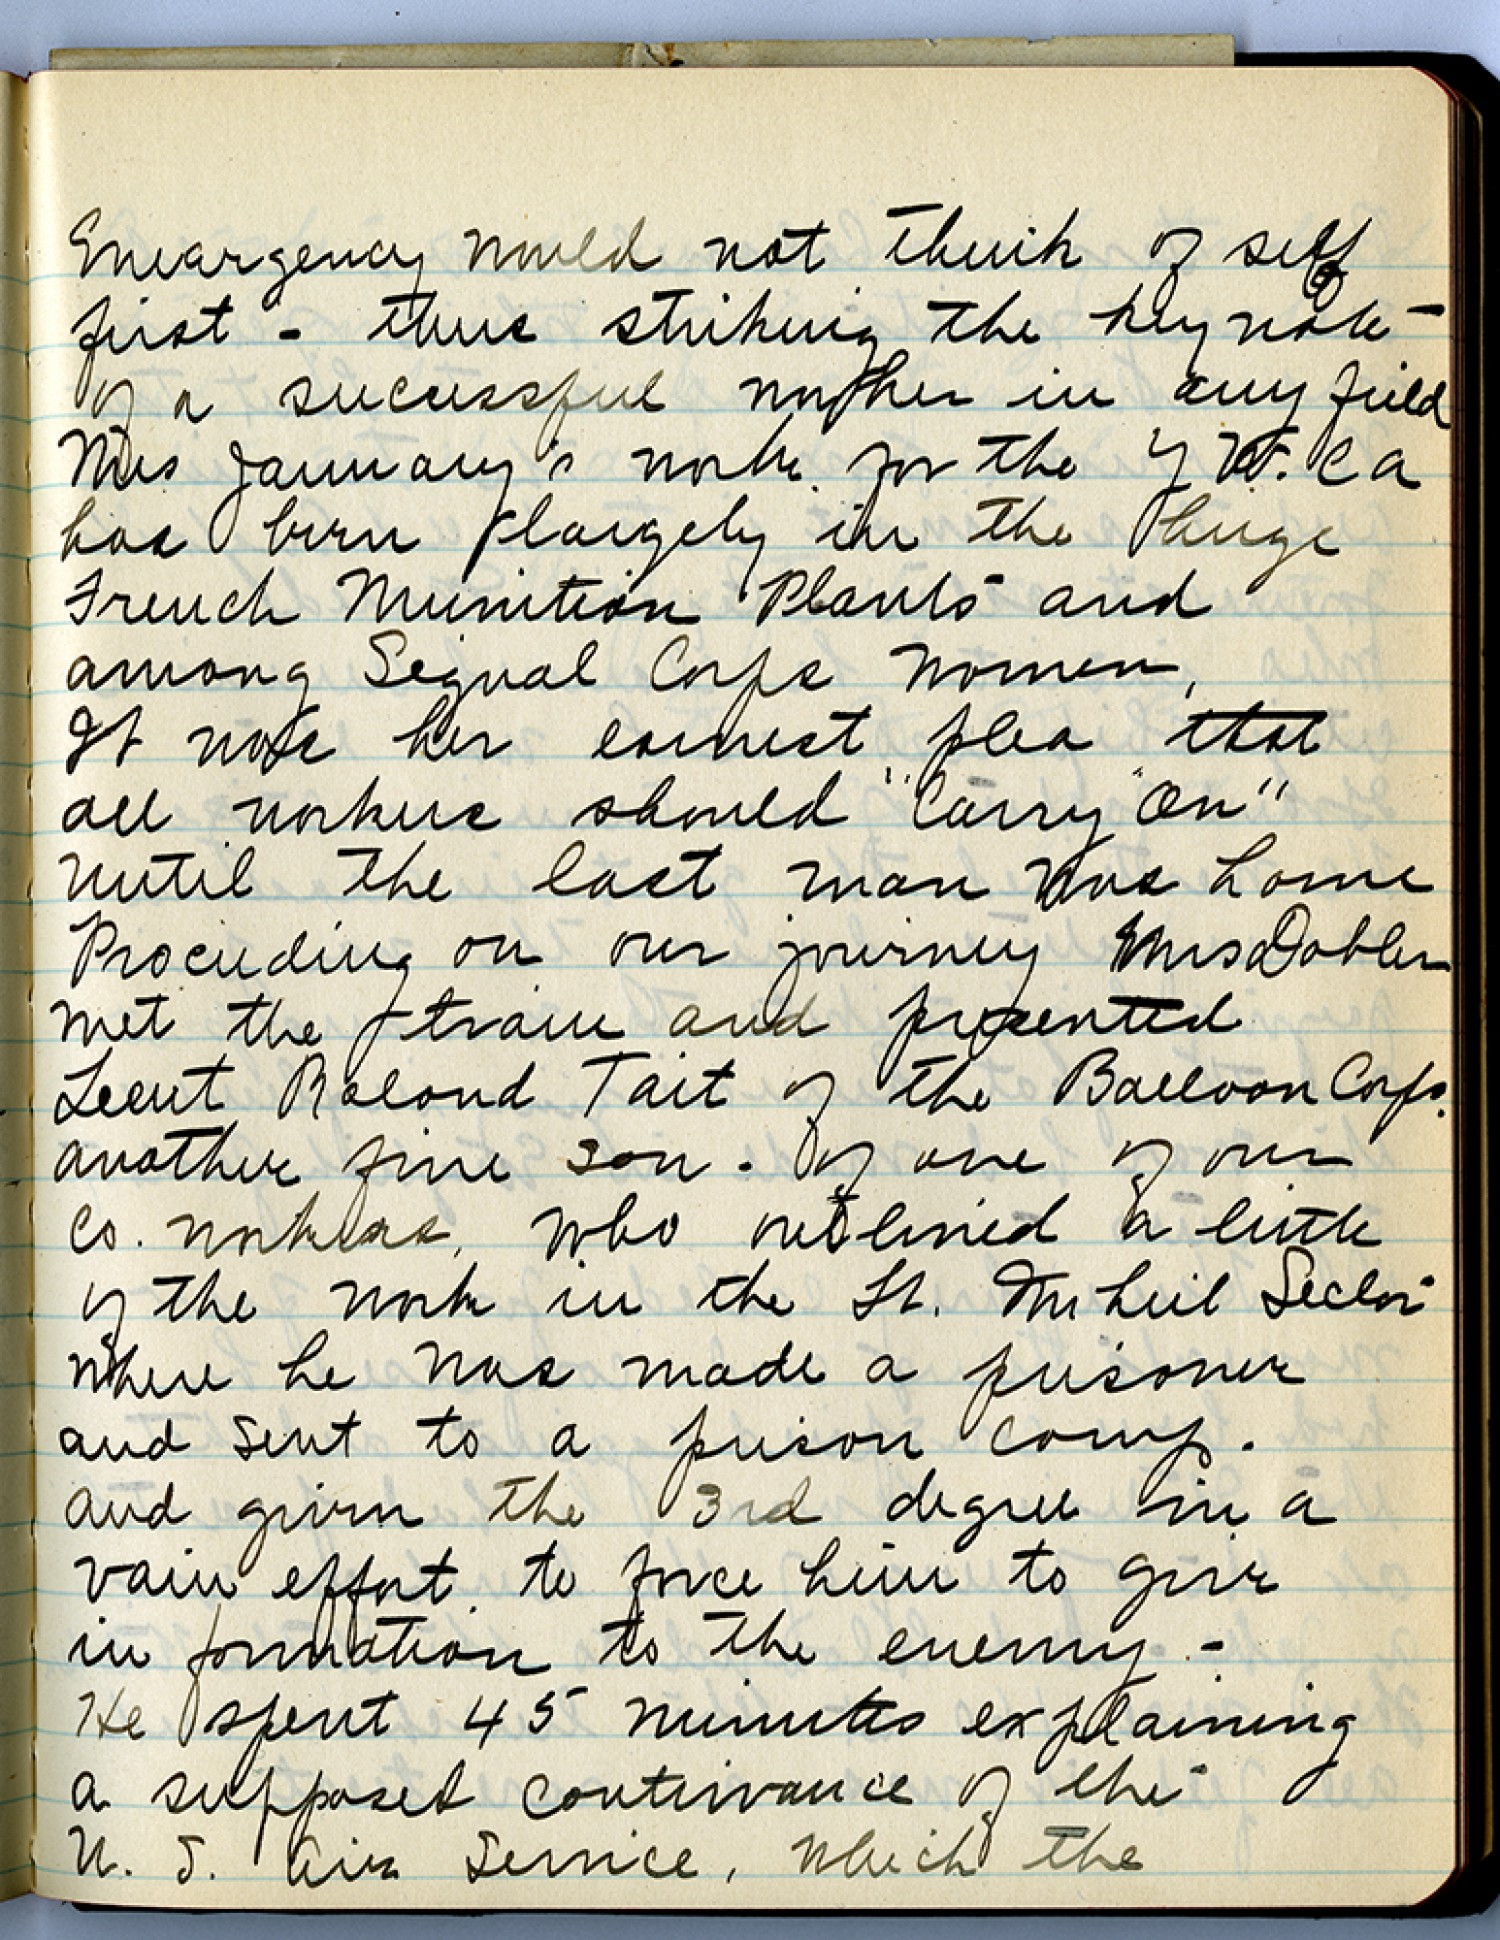 Emergency would not think of self
first - thus striking the key note
of a successful worker in any field
Mrs January's work for the Y W. C A
has been largely in the huge
French Munition Plants and
among Signal Corps women,
It was her earnest plea that
all workers should "Carry On"
until the last man was home
Proceeding on our journey Mrs Dobler
met the train and presented
Lieut Roland Tait of the Balloon Corps.
another fine son. of one of our
Co. workers, who outlined a little
of the work in the St. Mihiel Sector
where he was made a prisoner
and sent to a prison camp.
and given the 3rd degree in a
vain effort to force him to give
in formation to the enemy. -
He spent 45 minutes explaining
a supposed contrivance of the
U. S. Air Service, which the